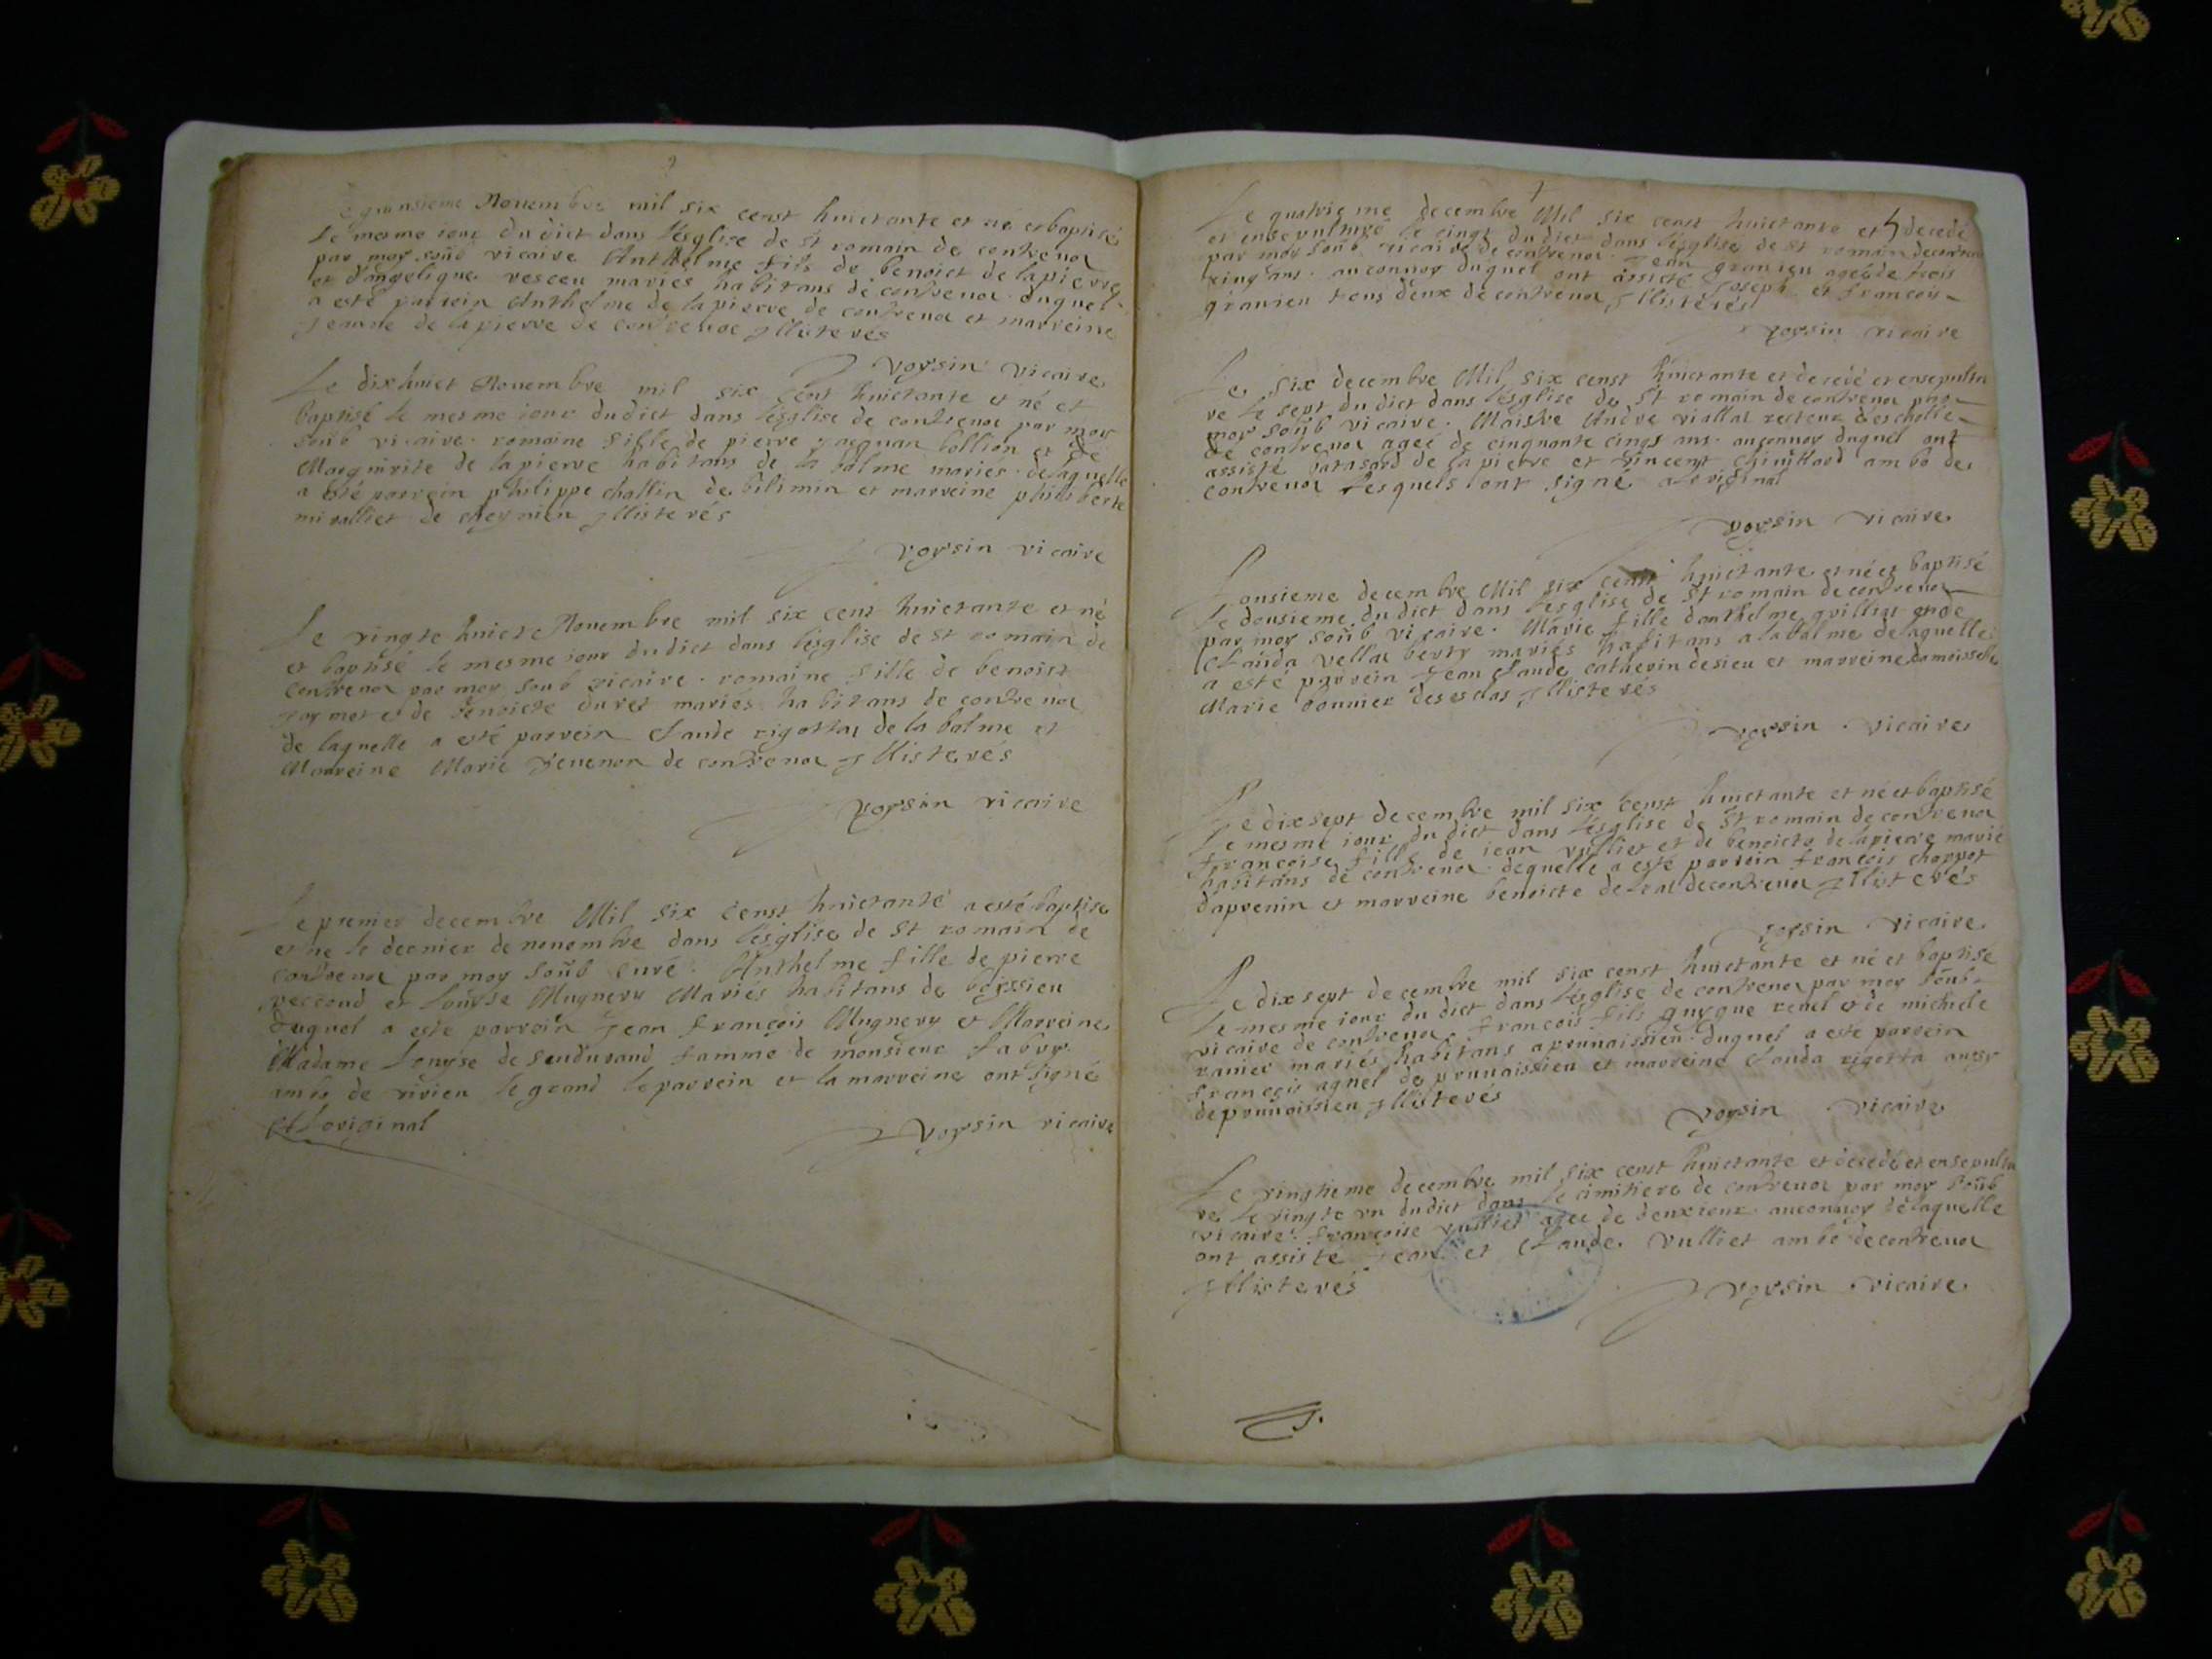 Le quinsieme Nouembre mil six censt huictante et ne et baptisé
le mesme iour du dict dans lésglise de st romain de contreuoz
par moy soub vicaire Anthelme fils de benoict de lapierre
et d'angelique vesceu mariés habitans de contreuoz duquel
a esté parrein Anthelme de la pierre de contreuoz et marreine
Jeanne de lapierre de contreuoz Jllisterés
Voysin Vicaire
Le dixhuict Nouembre mil six cent huictante et né et
baptisé le mesme iour du dict dans lésglise de contreuoz par moy
soub vicaire romaine fille de pierre Jacquar bollion et de
Marguirite de lapierre habitans de la balme mariés de laquelle
a esté parrein philippe challin de bilimin et marreine philiberte
miralliet de cheynieu Jllisterés
voysin vicaire
Le vingte huicte Nouembre mil six cenz huictante et né
et baptisé le mesme iour du dict dans lésglise de st romain de
contreuoz par moy soub vicaire romaine fille de benoist
Jaymet et de benoicte duret mariés habitans de contreuoz
de laquelle a esté parrein Claude rigottaz de la balme et
Marreine Marie Jeuenon de contreuoz Jllisterés
voysin vicaire
Le premier decembre Mil six censt huictante a esté baptise
et ne le dernier de nouembre dans lésglise de st romain de
contreuoz par moy soub curé Anthelme fille de pierre
reccoud et Louyse Mugnery Mariés habitans de boissieu
duquel a este parrein Jean françois Mugnery et Marreine
Madame Louyse de famme de monsieur fabry
ambo de virieu le grand le parrein et la marreine ont signé
a Loriginal
Voysin vicaire
Le quatrieme decembre Mil six censt huictante et decedé
et ensepulturé le cinqz du dict dans lésglise de st romain de contreuoz
par moy soub vicaire de contreuoz Jean granieu ageé de trois
vingt ans auconuoy duquel ont assisté Joseph et françois
granieu tous deux de contreuoz Jllisterés
voysin vicaire
Le six decembre Mil six censt huictante et decedé et ensepultu
ré le sept du dict dans lésglise de st romain de contreuoz par
moy soub vicaire Maistre Andre viallaz recteur descholle
de contreuoz ageé de cinquante cinqs ans auconuoy duquel ont
assisté batasard de lapierre et vincent ambo de
contreuoz lesquels ont signé a Loriginal
voysin vicaire
Lonsieme decembre Mil six censt huictante et né et baptisé
le dousieme du dict dans lésglise de st romain de contreuoz
par moy soub vicaire Marie fille d'anthelme guilliot et de
Clauda vellaz berty mariés habitans a la balme de laquelle
a esté parrein Jean Claude catherin desieu et marreine damoisselle
Marie bonnier des esclas Jllisterés
voysin vicaire
Le dixsept decembre mil six censt huictante et né et baptisé
le mesme iour du dict dans lésglise de st romain de contreuoz
françoise fille de iean vulliet et de benoicte de lapierre marié
habitans de contreuoz dequelle a esté parrein françois chappot
daprenin et marreine benoicte de laz de contreuoz Jllisterés
voysin vicaire
Le dixsept decembre mil six censt huictante et né et baptisé
le mesme iour du dict dans lésglise de contreuoz par moy soub
vicaire de contreuoz françois fils guygue renel et de michiele
ramer mariés habitans a prunaissieu duquel a esté parrein
françois agnel de prunaissieu et marreine Clauda rigotta aussy
de prunaissieu Jllisterés
voysin vicaire
Le vingtieme decembre mil six censt huictante et decedé et ensepultu
ré le vingte vn du dict dans le cimitiere de contreuoz par moy soub
vicaire françoise vulliet ageé de deux iour auconuoy de laquelle
ont assisté Jean et Claude vulliet ambo de contreuoz
Jllisterés
voysin vicaire